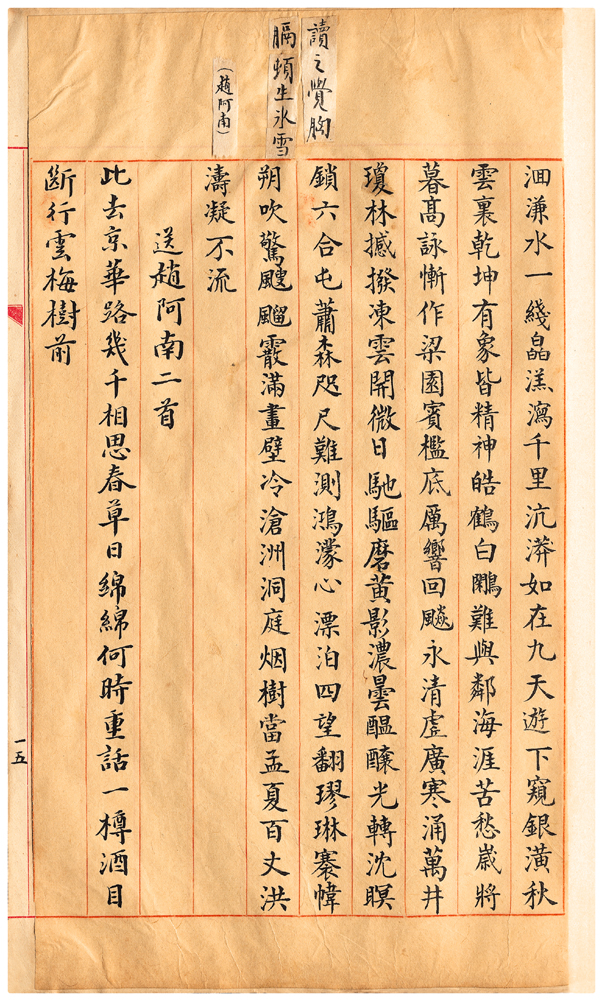 讀之覺胸
膈頓生氷雪
（趙阿南）
洄溓水一綫皛溔瀉千里沆漭如在九天遊下窺銀潢秋
雲裏乾坤有象皆精神皓鶴白鷴難與鄰海涯苦愁歲將
暮高詠慚作梁園賓檻底厲響回飈永清虛廣寒涌萬井
瓊林撼撥凍雲開微日馳驅磨黃影濃曇醞釀光轉沈瞑
鎖六合屯蕭森咫尺難測鴻濛心漂泊四望翻璆琳褰幃
朔吹驚颼飀霰滿畫壁冷滄洲洞庭烟樹當孟夏百丈洪
濤凝不流
送趙阿南二首
此去京華路幾千相思春草日綿綿何時重話一樽酒目
斷行雲梅樹前
一五